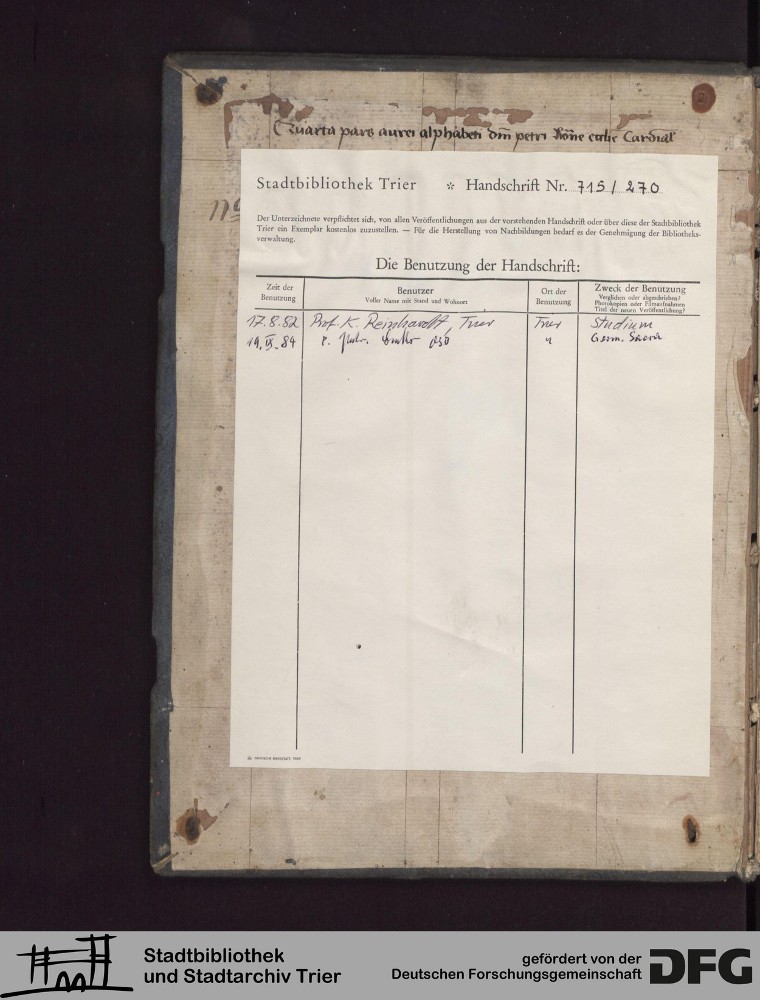 Quarta pars aurei alphabeti dni petri Rome eccłie Cardinał
Stadtbibliothek Trier * Handschrift Nr. 715 / 270
Der Unterzeichnete verpflichtet sich, von allen Veröffentlichungen aus der vorstehenden Handschrift oder über diese der Stadtbibliothek
Trier ein Exemplar kostenlos zuzustellen. — Für die Herstellung von Nachbildungen bedarf es der Genehmigung der Bibliotheks-
verwaltung.
Die Benutzung der Handschrift:
Zeit der
Benutzung
Benutzer
Voller Name mit Stand und Wohnort
Ort der
Benutzung
Zweck der Benutzung
Verglichen oder abgeschrieben?
Photokopien oder Filmaufnahmen
Titel der neuen Veröffentlichung?
17.8.82 Prof. K. Reinhardt, Trier Trier Studium
19.IX.84 P. OSB " Germ. Sacra
Stadtbibliothek
und Stadtarchiv Trier
gefördert von der
Deutschen Forschungsgemeinschaft
DFG